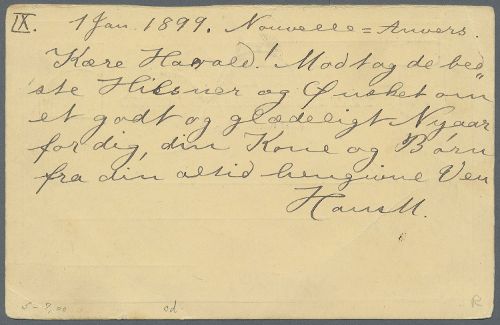 IX. 1 Jan. 1899. Nouvelle=Anvers.
Kære Harald! Modtag de bed"
ste Hilsner og Ønsket om
et godt og glædeligt Nyaar
for dig, din Kone og Børn
fra din altid hengivne Ven
Hans M.
cd. R